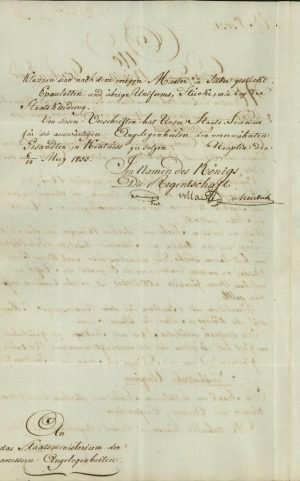 Klappen sind nach dem vorigen Muster in Silber gestickt.
Epauletten und übrige Uniforms, Stücke, wie bey der
Staatskleidung.
Von diesen Vorschriften hat Unser Staats Secretär
für die auswärtigen Angelegenheiten den vorerwähnten
Gesandten in Kentniss zu setzen. Nauplia den
1833.
Im Namen des Königs,
Die Regentschaft
An
das Staatsministerium der
äusseren Angelegenheiten.